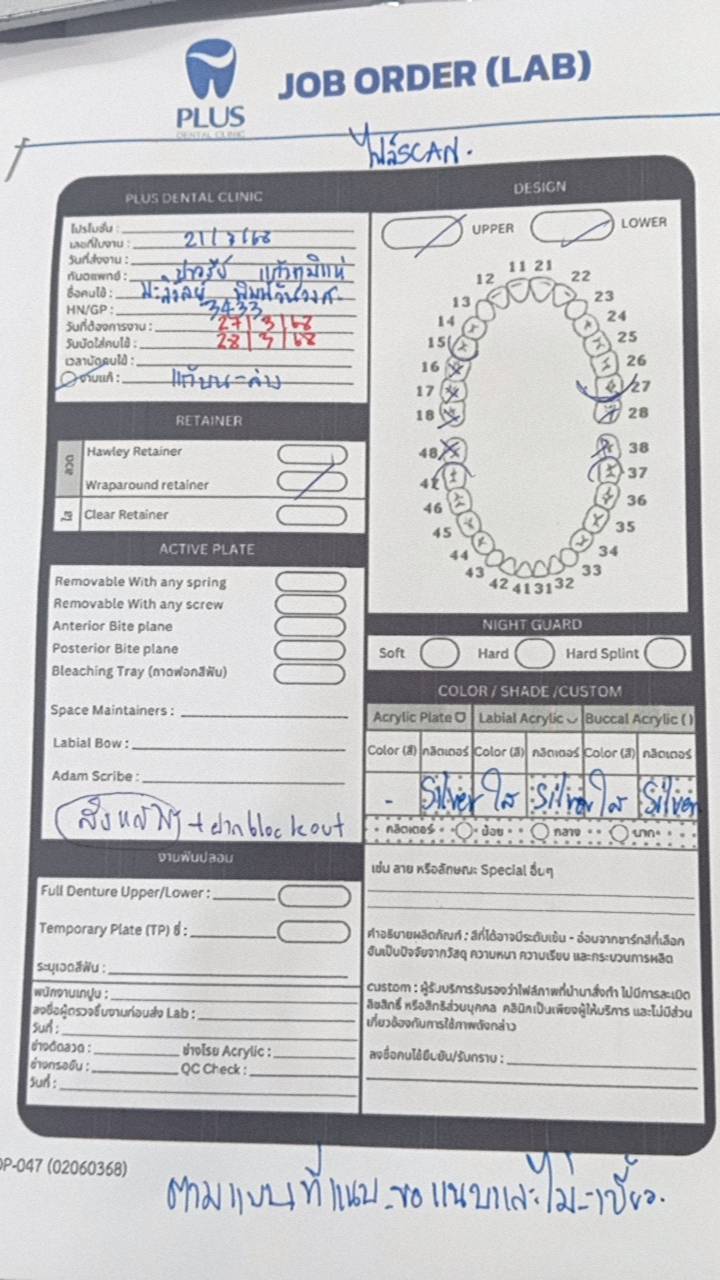 PLUS
DENTAL CLINIC
JOB ORDER (LAB)
ไฟล์SCAN.
PLUS DENTAL CLINIC
โปรโมชั่น :
เลขที่ใบงาน : 21/3/68
วันที่ส่งงาน :
ทันตแพทย์ :
ชื่อคนไข้ :
HN/GP : 3433
วันที่ต้องการงาน : 27/3/68
วันนัดใส่คนไข้ : 28/3/68
เวลานัดคนไข้ :
งานแก้ : แก้บน-ล่าง
RETAINER
ลวด
Hawley Retainer
Wraparound retainer
ใส
Clear Retainer
ACTIVE PLATE
Removable With any spring
Removable With any screw
Anterior Bite plane
Posterior Bite plane
Bleaching Tray (ถาดฟอกสีฟัน)
Space Maintainers :
Labial Bow :
Adam Scribe :
+ฝากblockout
งานฟันปลอม
Full Denture Upper/Lower :
Temporary Plate (TP) ซี่ :
ระบุเฉดสีฟัน :
พนักงานเทปูน :
ลงชื่อผู้ตรวจชิ้นงานก่อนส่ง Lab :
วันที่ :
ช่างดัดลวด : ช่างโรย Acrylic :
ช่างกรอขัด : QC Check :
วันที่ :
DESIGN
UPPER LOWER
11 21
12 22
13 23
14 24
15 25
16 26
17 27
18 28
48 38
47 37
46 36
45 35
44 34
43 33
42 41 31 32
NIGHT GUARD
Soft Hard Hard Splint
COLOR / SHADE /CUSTOM
Acrylic Plate Labial Acrylic Buccal Acrylic ( )
Color (สี) กลิตเตอร์ Color (สี) กลิตเตอร์ Color (สี) กลิตเตอร์
- Silver ใส Silver ใส Silver
กลิตเตอร์ น้อย กลาง มาก
เช่น ลาย หรือลักษณะ Special อื่นๆ
คำอธิบายผลิตภัณฑ์ : สีที่ได้อาจมีระดับเข้ม - อ่อนจากชาร์ทสีที่เลือก
อันเป็นปัจจัยจากวัสดุ ความหนา ความเรียบ และกระบวนการผลิต
custom : ผู้รับบริการรับรองว่าไฟล์ภาพที่นำมาสั่งทำ ไม่มีการละเมิด
ลิขสิทธิ์ หรือสิทธิส่วนบุคคล คลินิกเป็นเพียงผู้ให้บริการ และไม่มีส่วน
เกี่ยวข้องกับการใช้ภาพดังกล่าว
ลงชื่อคนไข้ยืนยัน/รับทราบ :
OP-047 (02060368)
ตามแบบที่แนบ-ขอแนบและไม่-เบี้ยว.